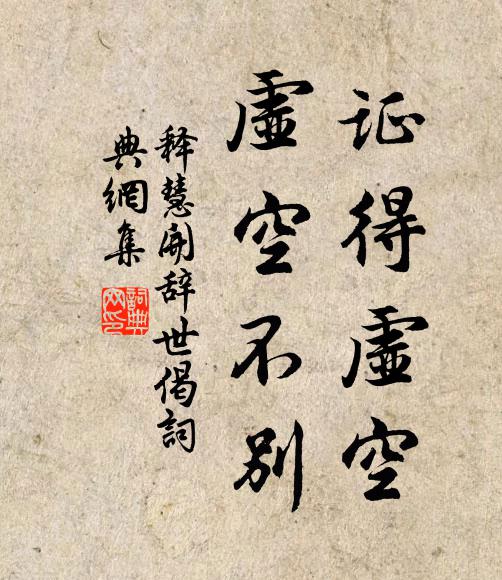 证得虚空
虚空不别
释慧开辞世偈詞
典網集
詞典网印